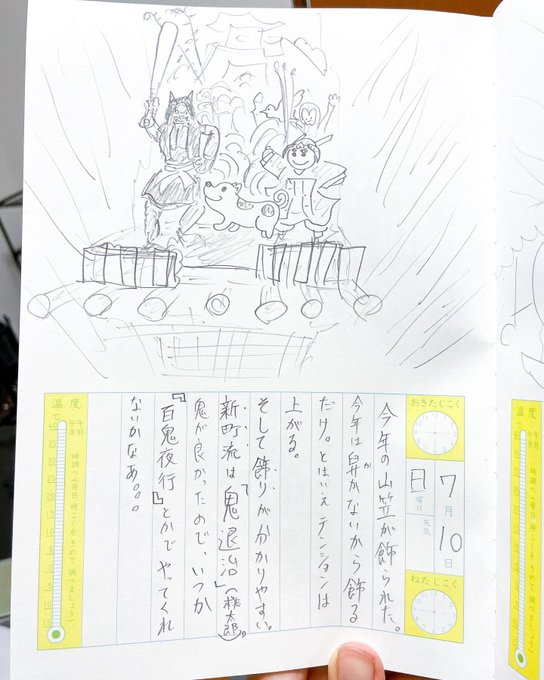 おきたじこく
7月10日
日曜日
天気
ねたじこく
今年の山笠が飾られた。
今年は舁かないから飾る
か
だけ。とはいえテンションは
上がる。
そして飾りが分かりやすい。
新町流は「鬼退治」(桃太郎)。
鬼が良かったので、いつか
『百鬼夜行』とかでやってくれ
ないかなあ。。。
温度
午前
午後
時調べ(毎日時こくをきめて調べましょう)
温度